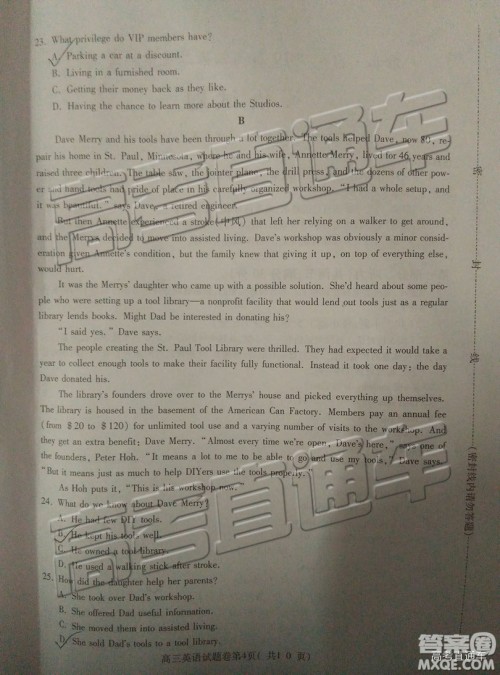 23. What privilege do VIP members have?
A. Parking a car at a discount.
B. Living in a furnished room.
C. Getting their money back as they like.
D. Having the chance to learn more about the Studios.
B
Dave Merry and his tools have been through a lot together. The tools helped Dave, now 80, re-
pair his home in St. Paul, Minnesota, where he and his wife, Annette Merry, lived for 46 years and
raised three children. The table saw, the jointer plane, the drill press and the dozens of other pow-
er and hand tools had pride of place in his carefully organized workshop. “I had a whole setup, and
it was beautiful.” says Dave, a retired engineer.
But then Annette experienced a stroke(中风) that left her relying on a walker to get around,
and the Merrys decided to move into assisted living. Dave's workshop was obviously a minor consid-
eration given Annette's condition, but the family knew that giving it up, on top of everything else,
would hurt.
It was the Merrys' daughter who came up with a possible solution. She'd heard about some peo-
ple who were setting up a tool library—a nonprofit facility that would lend out tools just as a regular
library lends books. Might Dad be interested in donating his?
“I said yes,” Dave says.
The people creating the St. Paul Tool Library were thrilled. They had expected it would take a
year to collect enough tools to make their facility fully functional. Instead it took one day: the day
Dave donated his.
The library's founders drove over to the Merrys' house and picked everything up themselves.
The library is housed in the basement of the American Can Factory. Members pay an annual fee
(from $20 to $120) for unlimited tool use and a varying number of visits to the workshop. And
they get an extra benefit: Dave Merry. “Almost every time we're open, Dave's here,” says one of
the founders, Peter Hoh. “It means a lot to me to be able to go and use my tools,” Dave says.
“But it means just as much to help DIYers use the tools properly.”
As Hoh puts it, “This is his workshop now.”
24. What do we know about Dave Merry?
A. He had few DIY tools.
B. He kept his tools well.
C. He owned a tool library.
D. He used a walking stick after stroke.
25. How did the daughter help her parents?
A. She took over Dad's workshop.
B. She offered Dad useful information.
C. She moved them into assisted living.
D. She sold Dad's tools to a tool library.
高三英语试题卷第4页( 共1 0 页)
密
封
线
(密封线内请勿答题)
高考直通车
高考直通车
高考直通车
高考直通车
答案圈
MXQE.COM